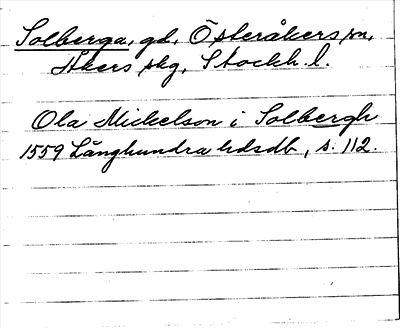 Solberga, gd, Österåkers sn,
Åkers skg, Stockh. l.
Ola Mickelson i Solbergh
1559 Långhundra hdsdb, s. 112.